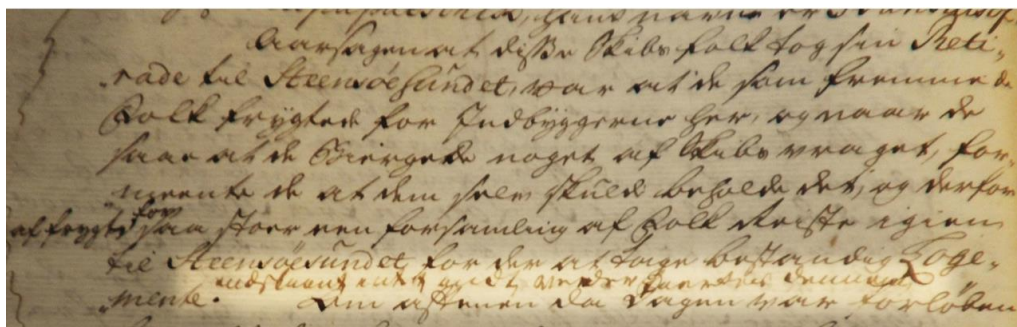 Aarsagen at disse Skibs folk tog sin Reti-
rade til Steensøesundet, var at de som fremmede
Folk frygtede for Indbyggerne her, og naar de
saae at de Biergede noget af Skibs vraget, for-
meente de at dem selv skulde beholde det, og derfor
af frygt for saa stoer een forsamling af Folk Reiste igien
til Steensøesundet for der at tage bestandig Loge-
mente. Om aftenen da dagen var forløben